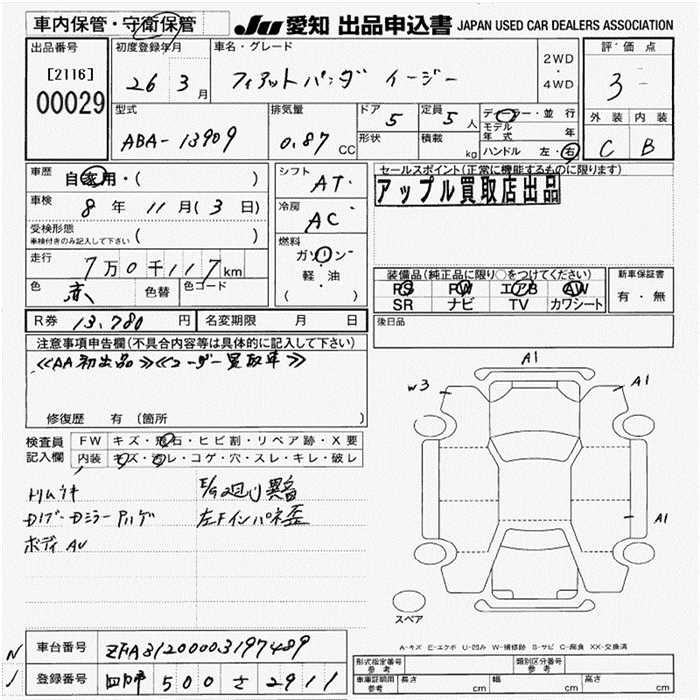 車内保管・守衛保管
JU 愛知 出品申込書 JAPAN USED CAR DEALERS ASSOCIATION
出品番号
[2116]
00029
初度登録年月
26 3月
車名・グレード
フィアットパンダ イージー
2WD
・
4WD
評価点
3
外装 内装
C B
型式
ABA-13909
排気量
0.87 CC
ドア 5
形状
定員 5人
積載 kg
ディーラー・並行
モデル年式 年
ハンドル 左・右
車歴
自家用・( )
車検
8年 11月(3日)
受検形態
車検付きのみ記入して下さい ( )
走行
7万0千117km
色
赤
色替
色コード
シフト
AT
冷房
AC
燃料
ガソリン
軽・油
( )
セールスポイント(正常に機能するものに限ります)
アップル買取店出品
装備品(純正品に限り○をつけてください)
PS PW エアB AW
SR ナビ TV カワシート
新車保証書
有・無
後日品
R券 13,780円
名変期限 月 日
注意事項申告欄(不具合内容等は具体的に記入して下さい)
≪AA初出品≫≪ユーザー買取車≫
修復歴 有 (箇所 )
検査員記入欄
FW キズ・飛石・ヒビ割・リペア跡・X要
内装 キズ・汚レ・コゲ・穴・スレ・キレ・破レ
トリムウキ
E/g廻り異音
左Fインパネ歪
ボディAU
A1
W3
A1
A1
スペア
A-キズ E-エクボ U-凹み W-補修跡 S-サビ C-腐食 XX-交換済
車台番号
ZFA31200003197489
登録番号
500 さ 2911
N
形式指定番号
参考
類別区分番号
参考
車庫証明用
参考
長さ cm
幅 cm
高さ cm